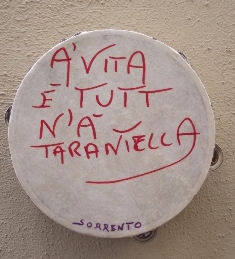 A' VITA
È TUTT
N'A
TARANTELLA
SORRENTO